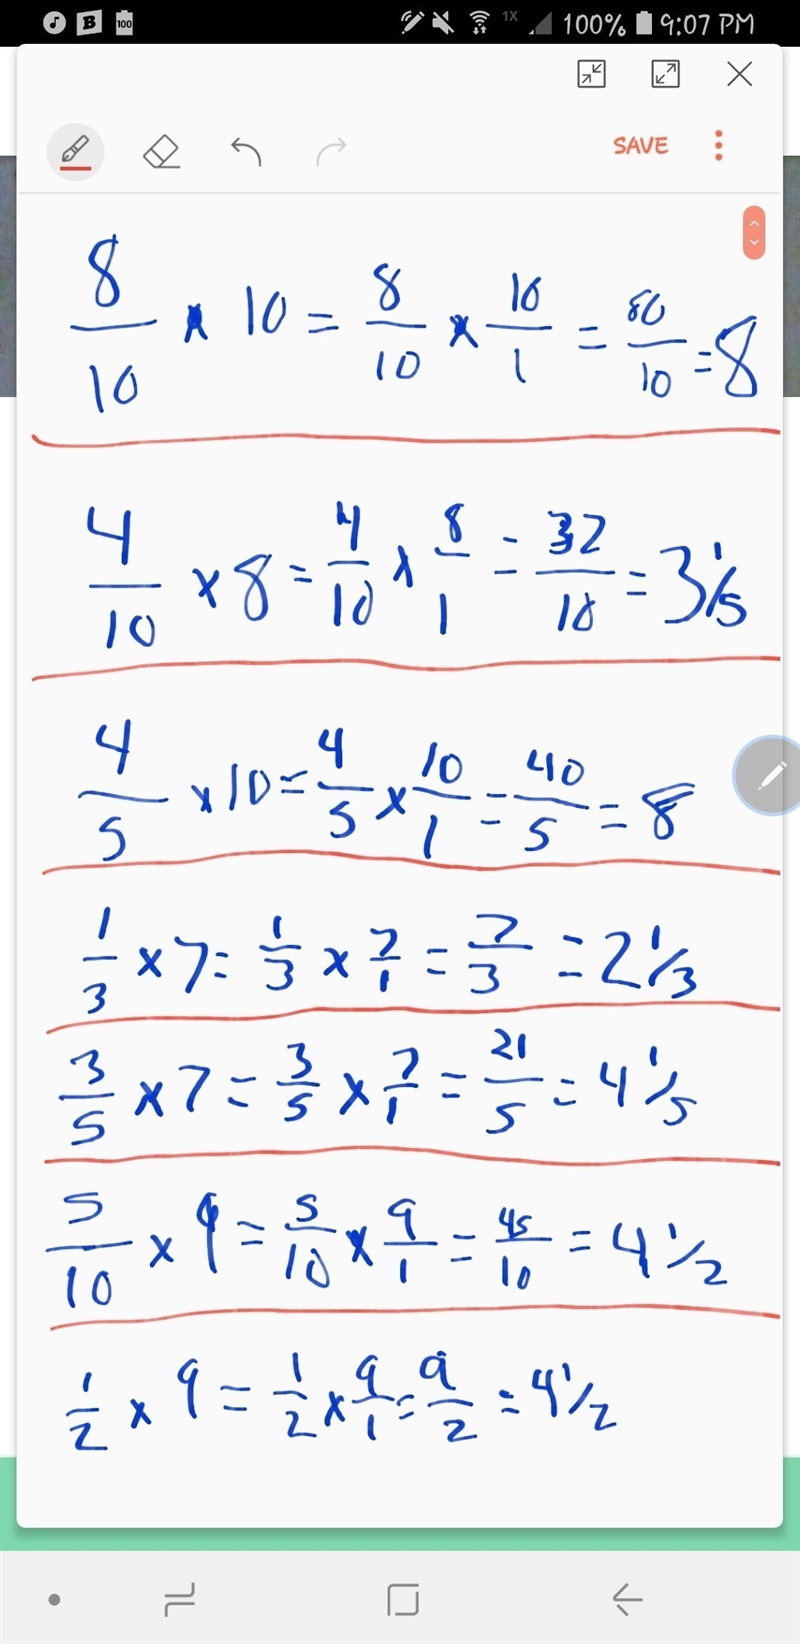 100 1X 100% 9:07 PM
SAVE
8/10 x 10 = 8/10 x 10/1 = 80/10 = 8
4/10 x 8 = 4/10 x 8/1 = 32/10 = 3 1/5
4/5 x 10 = 4/5 x 10/1 = 40/5 = 8
1/3 x 7 = 1/3 x 7/1 = 7/3 = 2 1/3
3/5 x 7 = 3/5 x 7/1 = 21/5 = 4 1/5
5/10 x 9 = 5/10 x 9/1 = 45/10 = 4 1/2
1/2 x 9 = 1/2 x 9/1 = 9/2 = 4 1/2